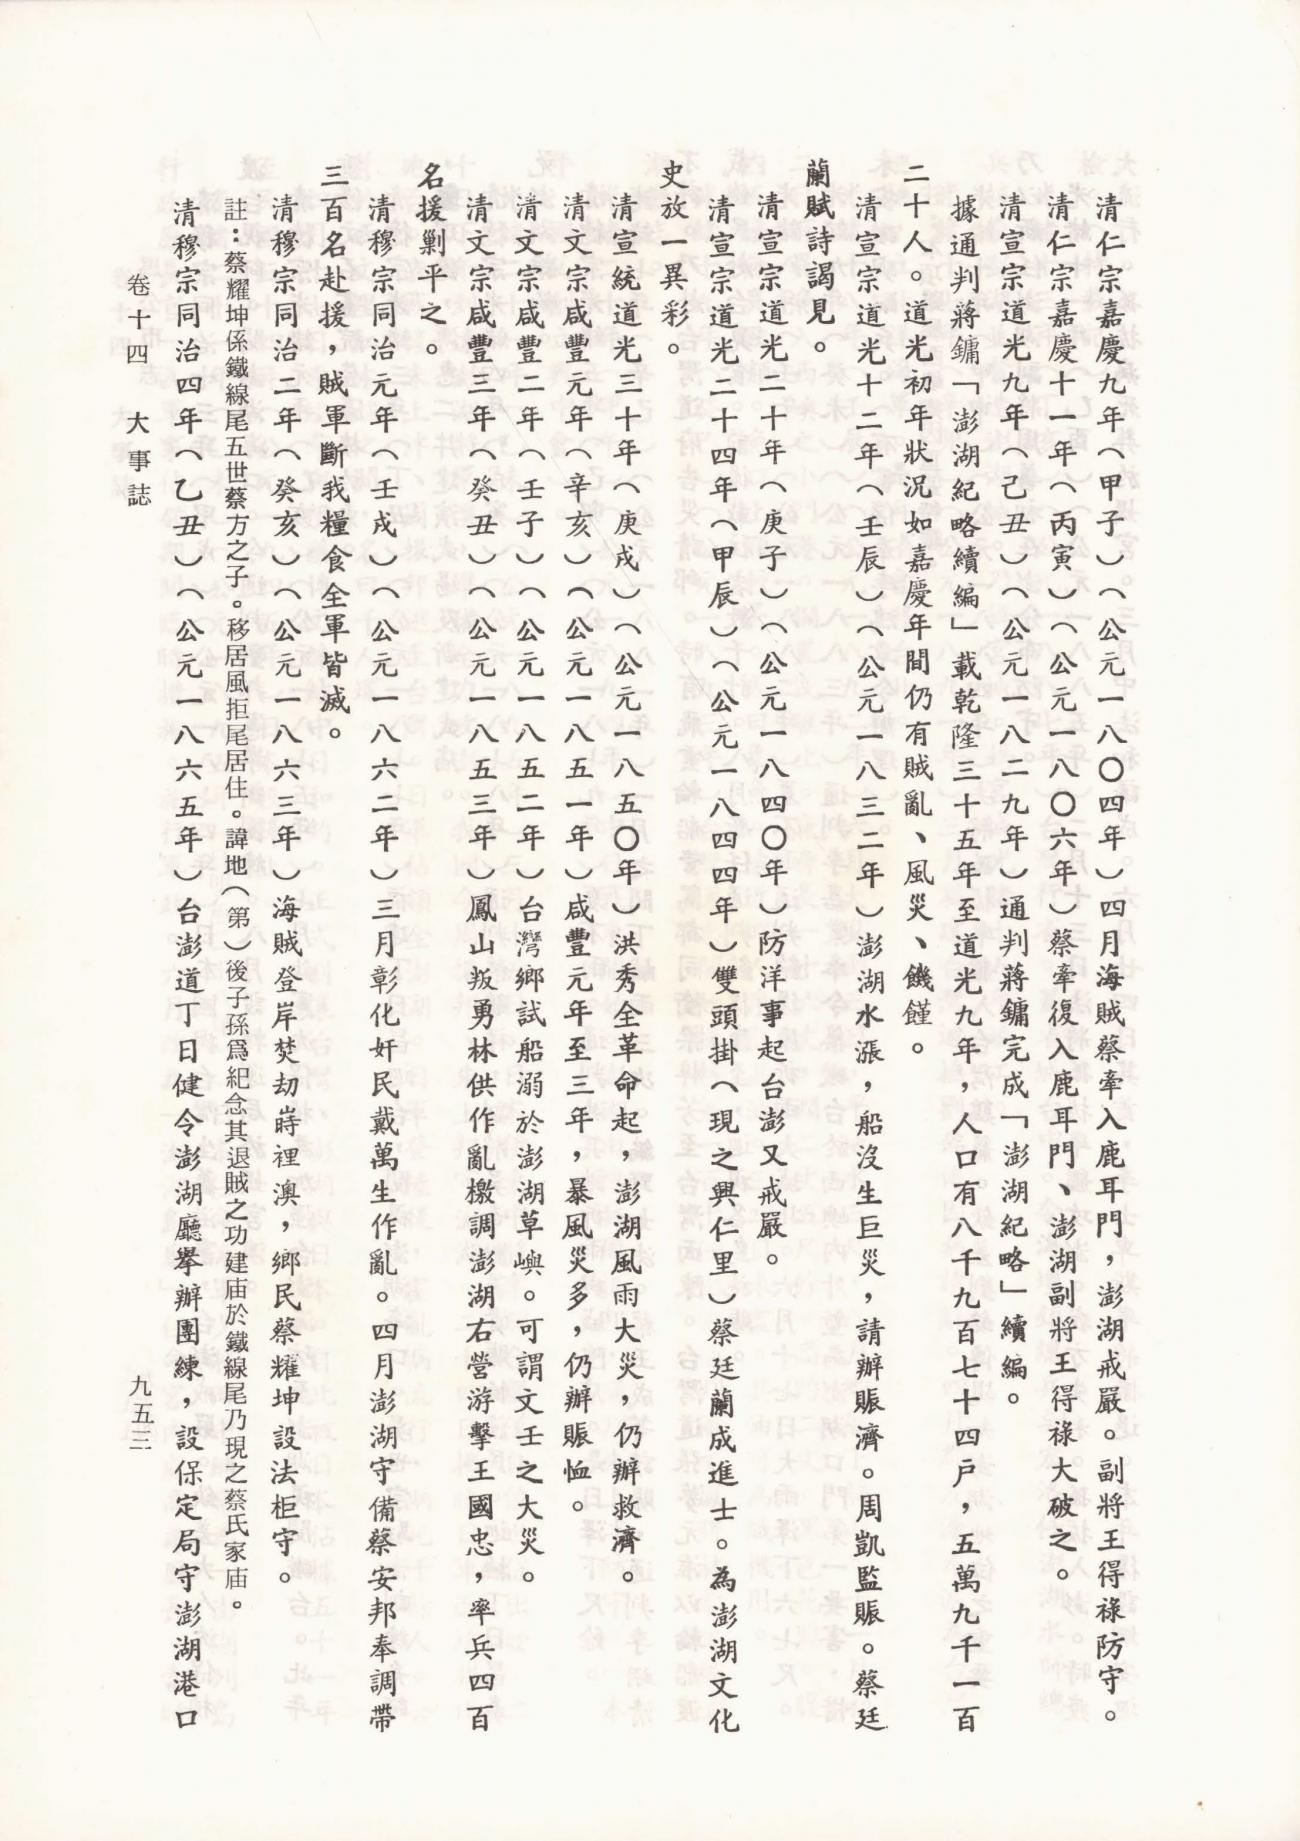 清仁宗嘉慶九年（甲子）（公元一八〇四年）四月海賊蔡牽入鹿耳門，澎湖戒嚴。副將王得祿防守。
清仁宗嘉慶十一年（丙寅）（公元一八〇六年）蔡牽復入鹿耳門、澎湖副將王得祿大破之。
清宣宗道光九年（己丑）（公元一八二九年）通判蔣鏞完成「澎湖紀略」續編。
據通判蔣鏞「澎湖紀略續編」載乾隆三十五年至道光九年，人口有八千九百七十四戶，五萬九千一百
二十人。道光初年狀況如嘉慶年間仍有賊亂、風災、饑饉。
清宣宗道光十二年（壬辰）（公元一八三二年）澎湖水漲，船沒生巨災，請辦賑濟。周凱監賑。蔡廷
蘭賦詩謁見。
清宣宗道光二十年（庚子）（公元一八四〇年）防洋事起台澎又戒嚴。
清宣宗道光二十四年（甲辰）（公元一八四四年）雙頭掛（現之興仁里）蔡廷蘭成進士。為澎湖文化
史放一異彩。
清宣統道光三十年（庚戌）（公元一八五〇年）洪秀全革命起，澎湖風雨大災，仍辦救濟。
清文宗咸豐元年（辛亥）（公元一八五一年）咸豐元年至三年，暴風災多，仍辦賑恤。
清文宗咸豐二年（壬子）（公元一八五二年）台灣鄉試船溺於澎湖草嶼。可謂文壬之大災。
清文宗咸豐三年（癸丑）（公元一八五三年）鳳山叛勇林供作亂檄調澎湖右營游擊王國忠，率兵四百
名援剿平之。
清穆宗同治元年（壬戌）（公元一八六二年）三月彰化奸民戴萬生作亂。四月澎湖守備蔡安邦奉調帶
三百名赴援，賊軍斷我糧食全軍皆滅。
清穆宗同治二年（癸亥）（公元一八六三年）海賊登岸焚劫嵵裡澳，鄉民蔡耀坤設法柜守。
註：蔡耀坤係鐵線尾五世蔡方之子。移居風拒尾居住。諱地（第）後子孫爲紀念其退賊之功建庙於鐵線尾乃現之蔡氏家庙。
清穆宗同治四年（乙丑）（公元一八六五年）台澎道丁日健令澎湖廳擧辦團練，設保定局守澎湖港口
卷十四　大事誌
九五三